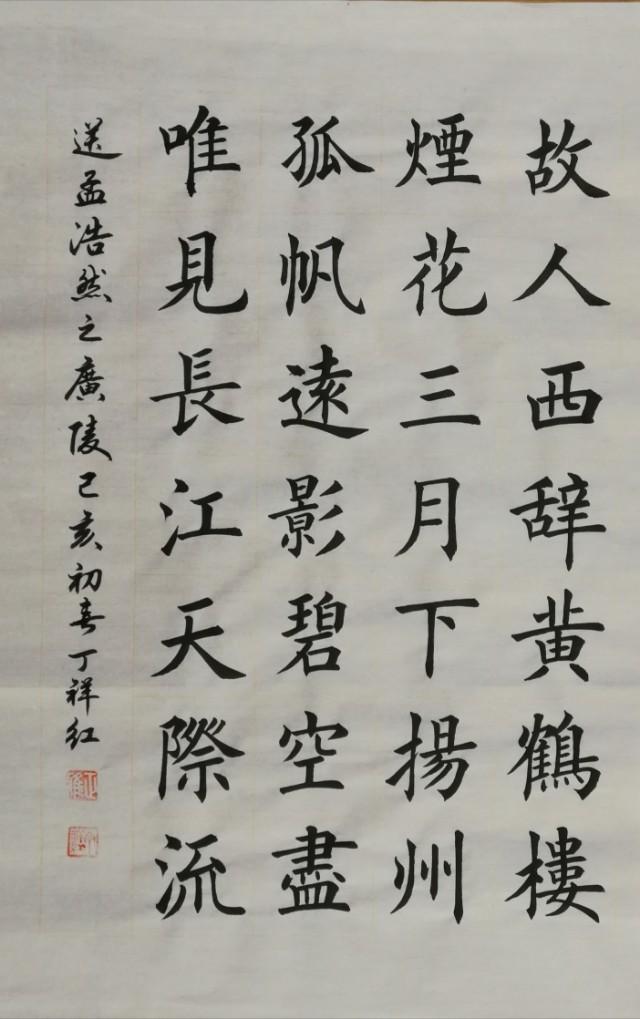 故人西辞黄鶴樓
煙花三月下揚州
孤帆遠影碧空盡
唯見長江天際流
送孟浩然之廣陵己亥初春丁祥红